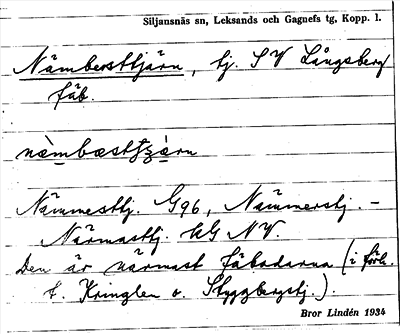 Siljansnäs sn, Leksands och Gagnefs tg, Kopp. l.
Nämbersttjärn, tj. S V Långsberg
fäb.
nämbæsttʃæ̀rn
Nämmesttj. G96, Nämmerstj. –
Närmasttj. HG NV.
Den är närmast fäbodarna (i förh.
t. Kringlen o. Styggbergstj.).
Bror Lindén 1934